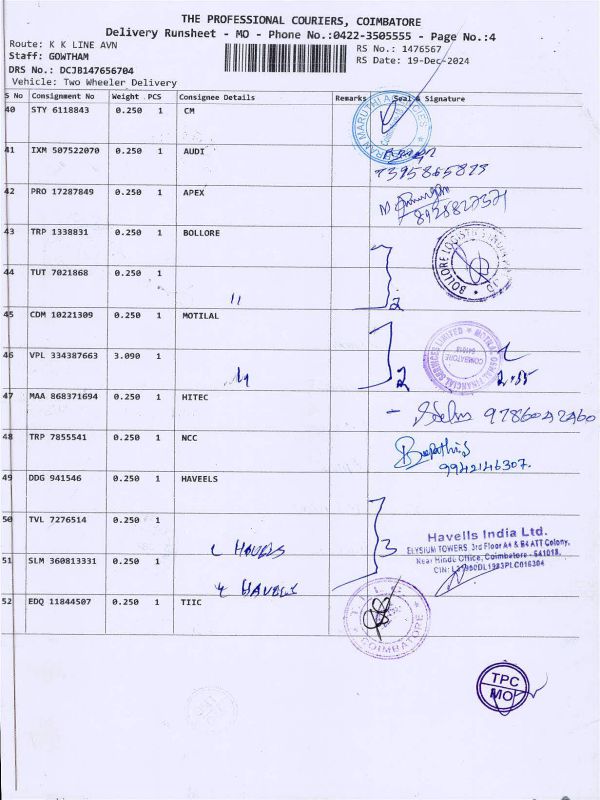 THE PROFESSIONAL COURIERS, COIMBATORE
Delivery Runsheet - MO - Phone No.:0422-3505555 - Page No.:4
Route: K K LINE AVN
RS No.: 1476567
Staff: GOWTHAM
RS Date: 19-Dec-2024
DRS No.: DCJB147656704
Vehicle: Two Wheeler Delivery
S No Consignment No Weight PCS Consignee Details Remarks Seal & Signature
40 STY 6118843 0.250 1 CM
41 IXM 507522070 0.250 1 AUDI
7395865873
42 PRO 17287849 0.250 1 APEX
43 TRP 1338831 0.250 1 BOLLORE
BOLLORE LOGISTICS
44 TUT 7021868 0.250 1
11
2
45 CDM 10221309 0.250 1 MOTILAL
MOTILAL OSWAL FINANCIAL SERVICES LIMITED
COIMBATORE
641018
46 VPL 334387663 3.090 1
2
2.55
47 MAA 868371694 0.250 1 HITEC
9786042460
48 TRP 7855541 0.250 1 NCC
9942146307.
49 DDG 941546 0.250 1 HAVEELS
50 TVL 7276514 0.250 1
HAVELS
3
Havells India Ltd.
ELYSIUM TOWERS, 3rd Floor A4 & B4 ATT Colony,
Near Hindu Office, Coimbatore - 641018.
CIN: L31900DL1983PLC016304
51 SLM 360813331 0.250 1
52 EDQ 11844507 0.250 1 TIIC
COIMBATORE
TPC
MO